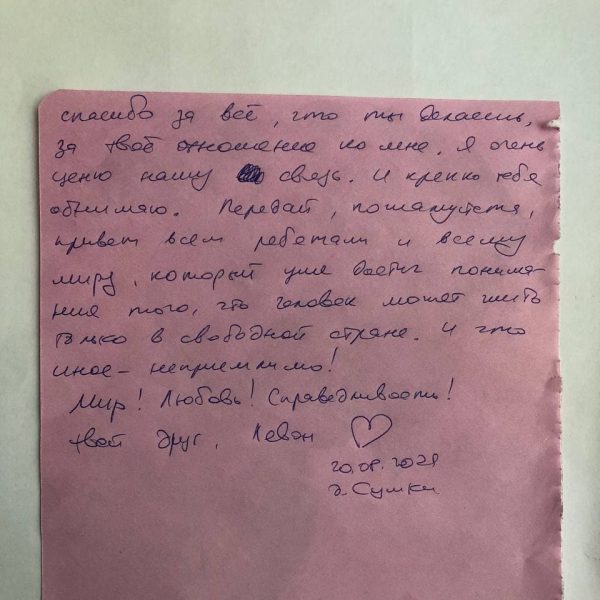 спасибо за всё, что ты делаешь,
за твоё отношение ко мне. Я очень
ценю нашу связь. И крепко тебя
обнимаю. Передай, пожалуйста,
привет всем ребятам и всему
миру, который уже достиг понима-
ния того, что человек может жить
только в свободной стране. И что
иное - неприемлимо!
Мир! Любовь! Справедливость!
твой друг, Леван
д. Сумки